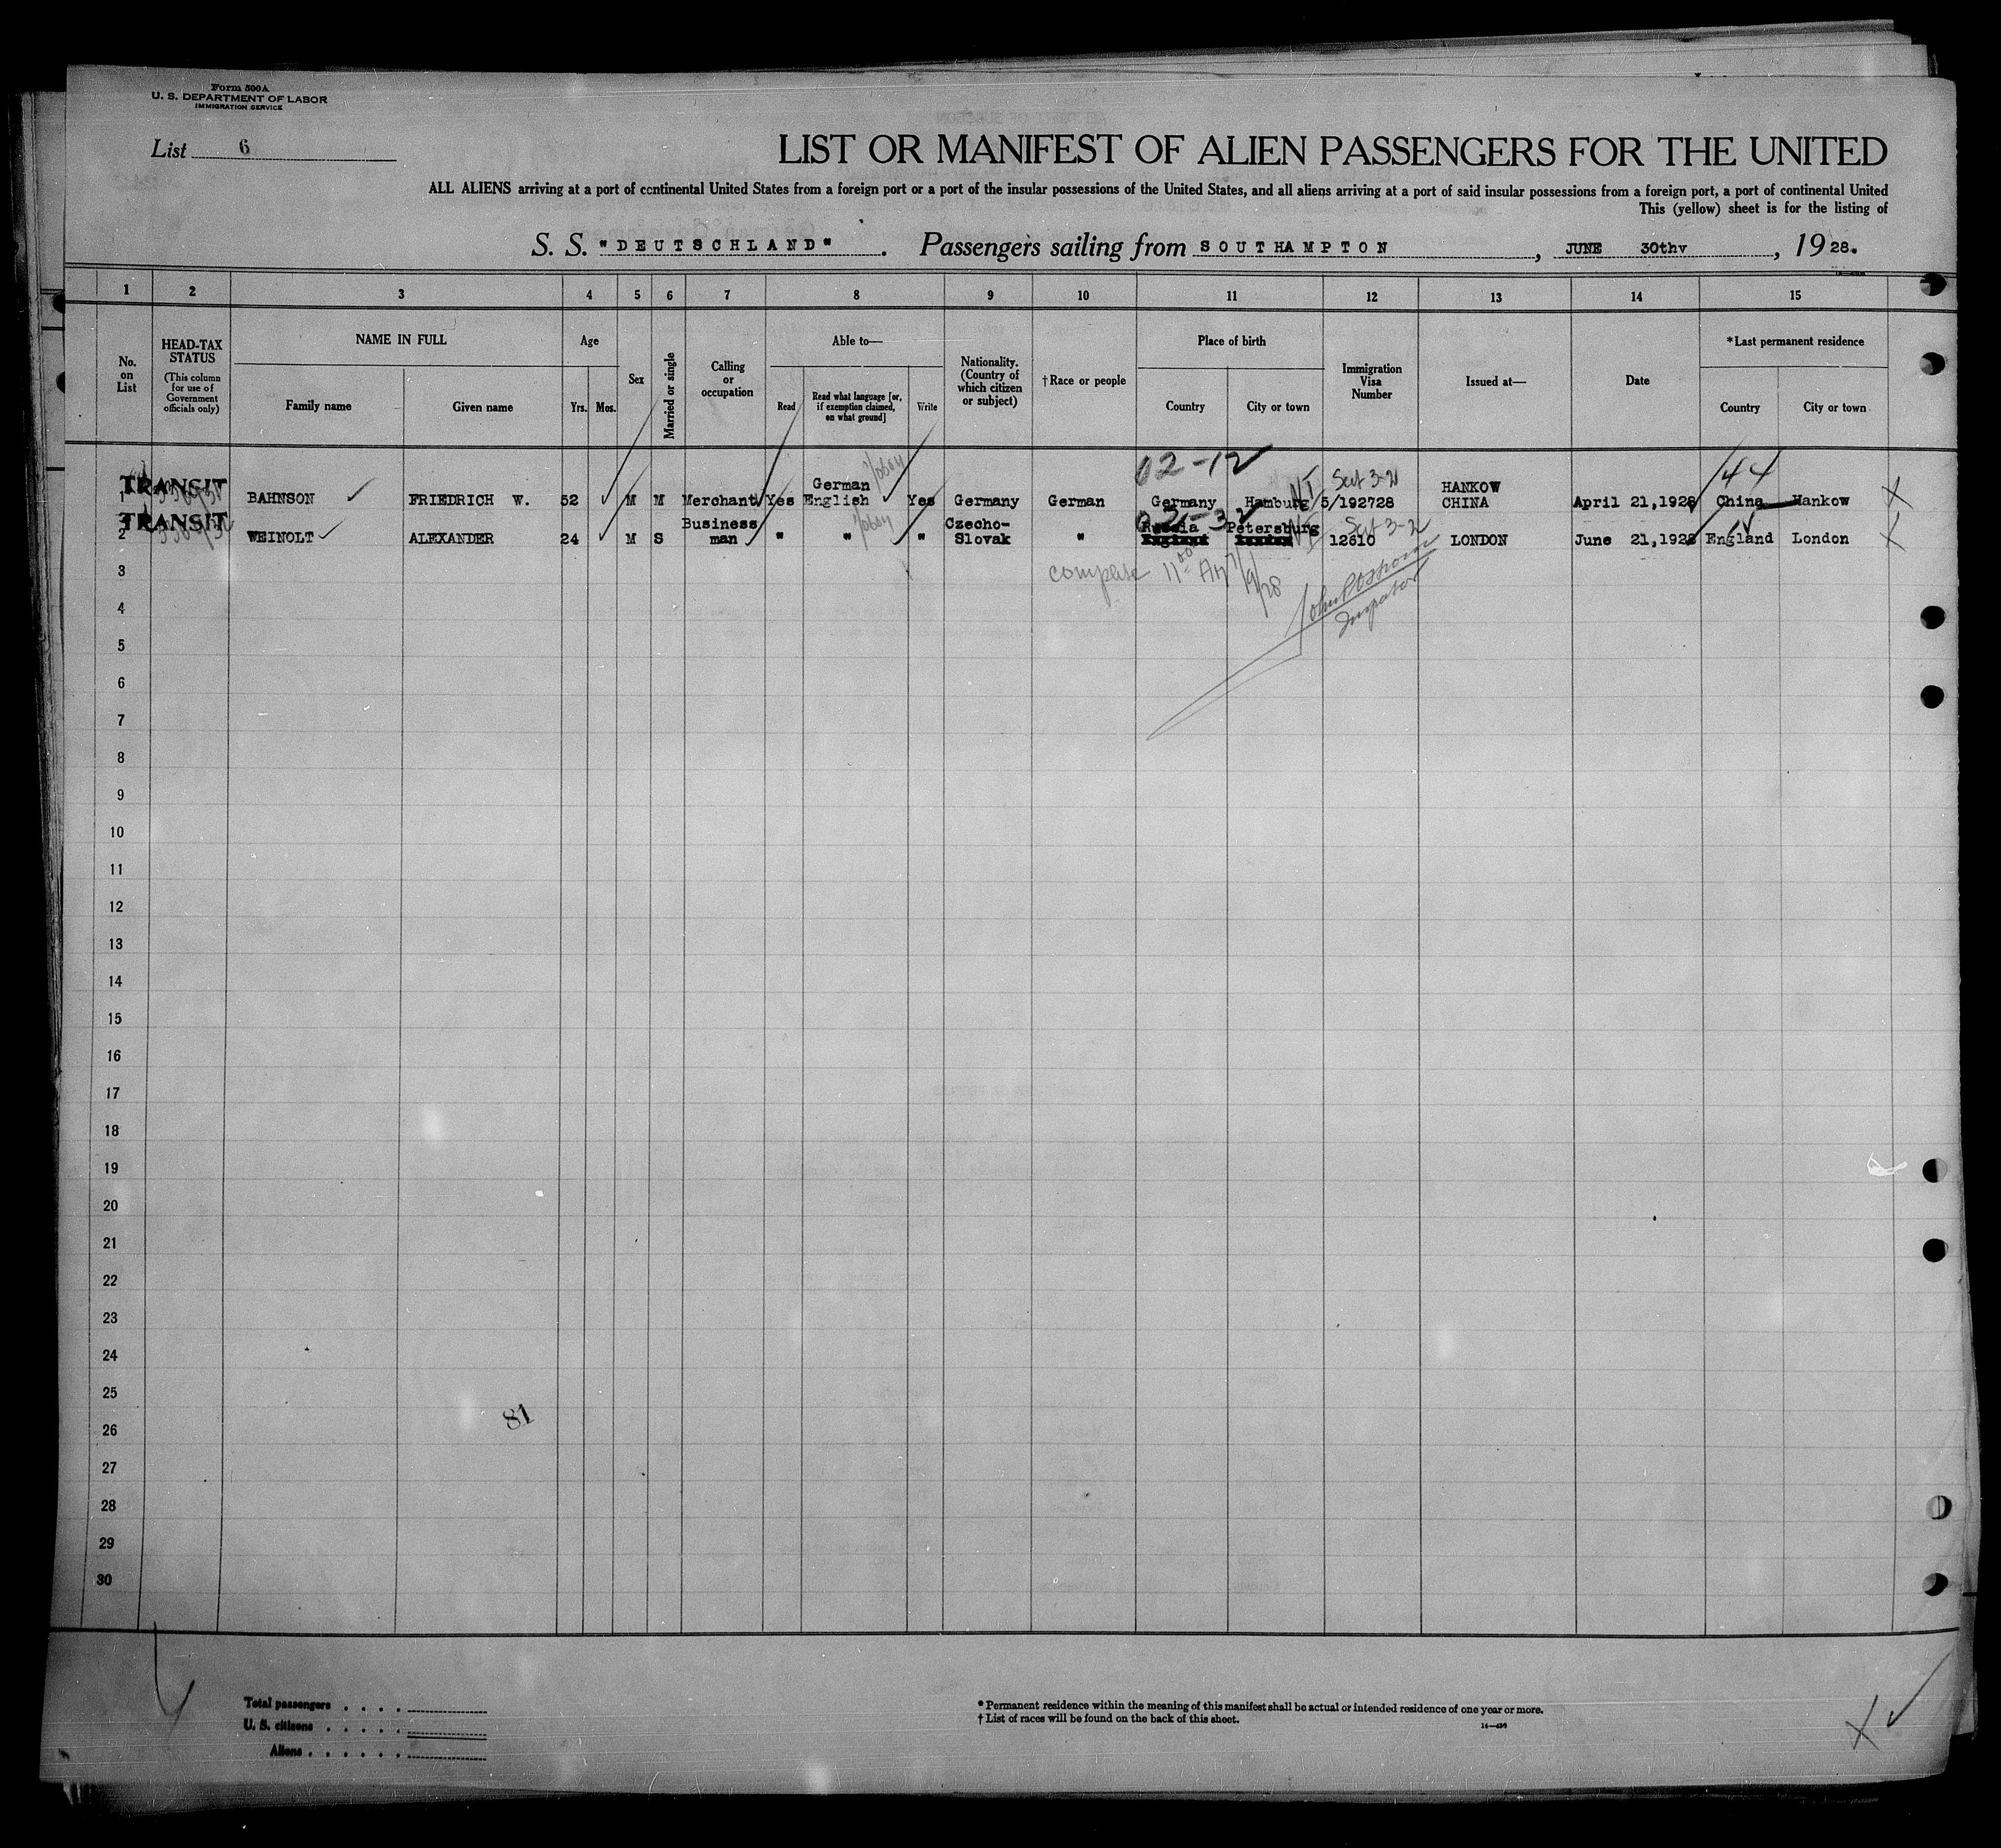 Form 500A
U. S. DEPARTMENT OF LABOR
IMMIGRATION SERVICE
List 6
LIST OR MANIFEST OF ALIEN PASSENGERS FOR THE UNITED
ALL ALIENS arriving at a port of continental United States from a foreign port or a port of the insular possessions of the United States, and all aliens arriving at a port of said insular possessions from a foreign port, a port of continental United
This (yellow) sheet is for the listing of
S. S. "DEUTSCHLAND". Passengers sailing from SOUTHAMPTON, JUNE 30thv, 1928.
1 2 3 4 5 6 7 8 9 10 11 12 13 14 15
No. on List
HEAD-TAX STATUS (This column for use of Government officials only)
NAME IN FULL
Family name
Given name
Age
Yrs. Mos.
Sex
Married or single
Calling or occupation
Able to—
Read
Read what language [or, if exemption claimed, on what ground]
Write
Nationality. (Country of which citizen or subject)
†Race or people
Place of birth
Country
City or town
Immigration Visa Number
Issued at—
Date
*Last permanent residence
Country
City or town
02-12 Sect 3-2 44
TRANSIT German HANKOW
1 BAHNSON FRIEDRICH W. 52 M M Merchant Yes English Yes Germany German Germany Hamburg NI 5/192728 CHINA April 21,1928 China Hankow X
TRANSIT Business Czecho- 02-32 Russia Petersburg Sect 3-2
2 WEINOLT ALEXANDER 24 M S man " " " Slovak " 12610 LONDON June 21,1928 England London X
3 complete 11 00 AM 7/9/28
John P Osborn
Inspector
4
5
6
7
8
9
10
11
12
13
14
15
16
17
18
19
20
21
22
23
24
25
81
26
27
28
29
30
Total passengers
U. S. citizens
Aliens
* Permanent residence within the meaning of this manifest shall be actual or intended residence of one year or more.
† List of races will be found on the back of this sheet.
14—439
X